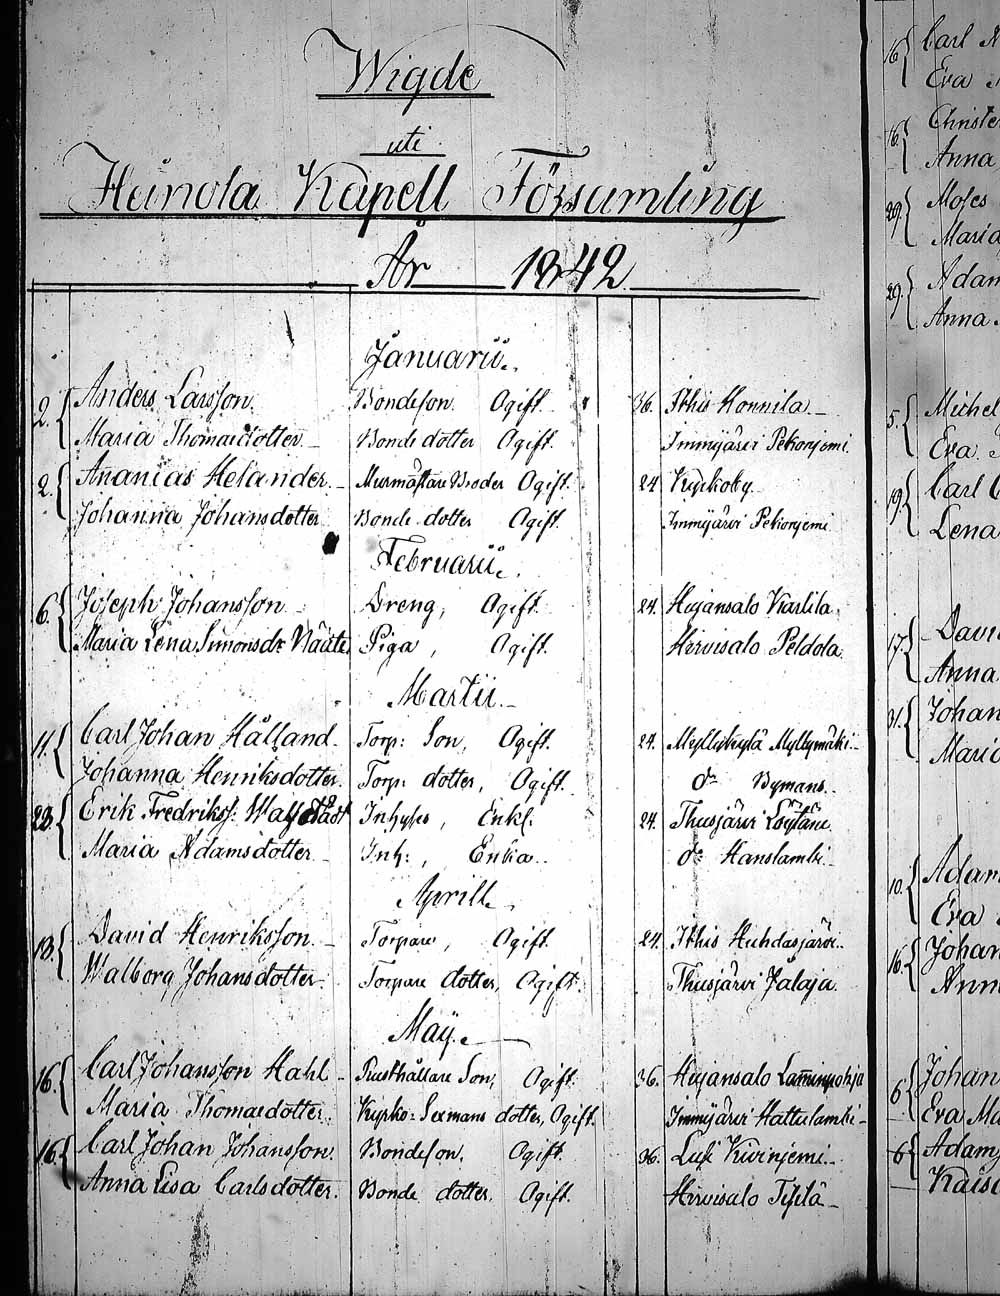 Wigde
uti
Heinola Kapell Församling
År 1842
Januarii.
2. Anders Larsson. Bondeson. Ogift. 36. Ithis Konnila
Maria Thomaedotter Bonde dotter Ogift. Immjärvi Pekonjemi
2. Ananias Helander Murmästare Broder Ogift. 24 Kyrkoby
Johanna Johansdotter Bonde dotter Ogift. Immjärvi Pekonjemi
Februarii.
6. Joseph Johansson Dreng, Ogift. 24. Hujansalo Karlila
Maria Lena Simonsdr Näite Piga, Ogift. Hirvisalo Peldola
Martii
11. Carl Johan Hålland Torp: Son, Ogift. 24. Myllykylä Myllymäki
Johanna Henriksdotter. Torp: dotter, Ogift. do Nymans
23. Erik Fredrikss. Inhyses, Enkl. 24. Thusjärvi Löytäne
Maria Adamsdotter Inh:, Enka. do Hanslambi
Aprill
13. David Henriksson. Torpare, Ogift. 24. Ithis Huhdasjärvi
Walborg Johansdotter. Torpare dotter, Ogift. Thusjärvi Jalaja
Maÿ.
16. Carl Johansson Hahl Rusthållare Son, Ogift. 36. Hujansalo Lamminpohja
Maria Thomaedotter. Kyrko: Sexmans dotter, Ogift. Immjärvi Hattulambi
16. Carl Johan Johansson. Bondeson. Ogift 36. Lusi Kivinjemi
Anna Lisa Carlsdotter. Bonde dotter. Ogift. Hirvisalo Tijilä
16 Carl
Eva
16. Christer
Anna
29. Moses
Maria
29. Adam
Anna
5. Michel
Eva
19. Carl
Lena
17. David
Anna
31. Johan
Maria
10. Adam
Eva
16. Johan
Anna
6 Johan
Eva
6 Adam
Kaisa